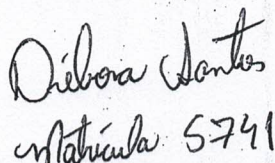 Diébora Santos
Matrícula 5741